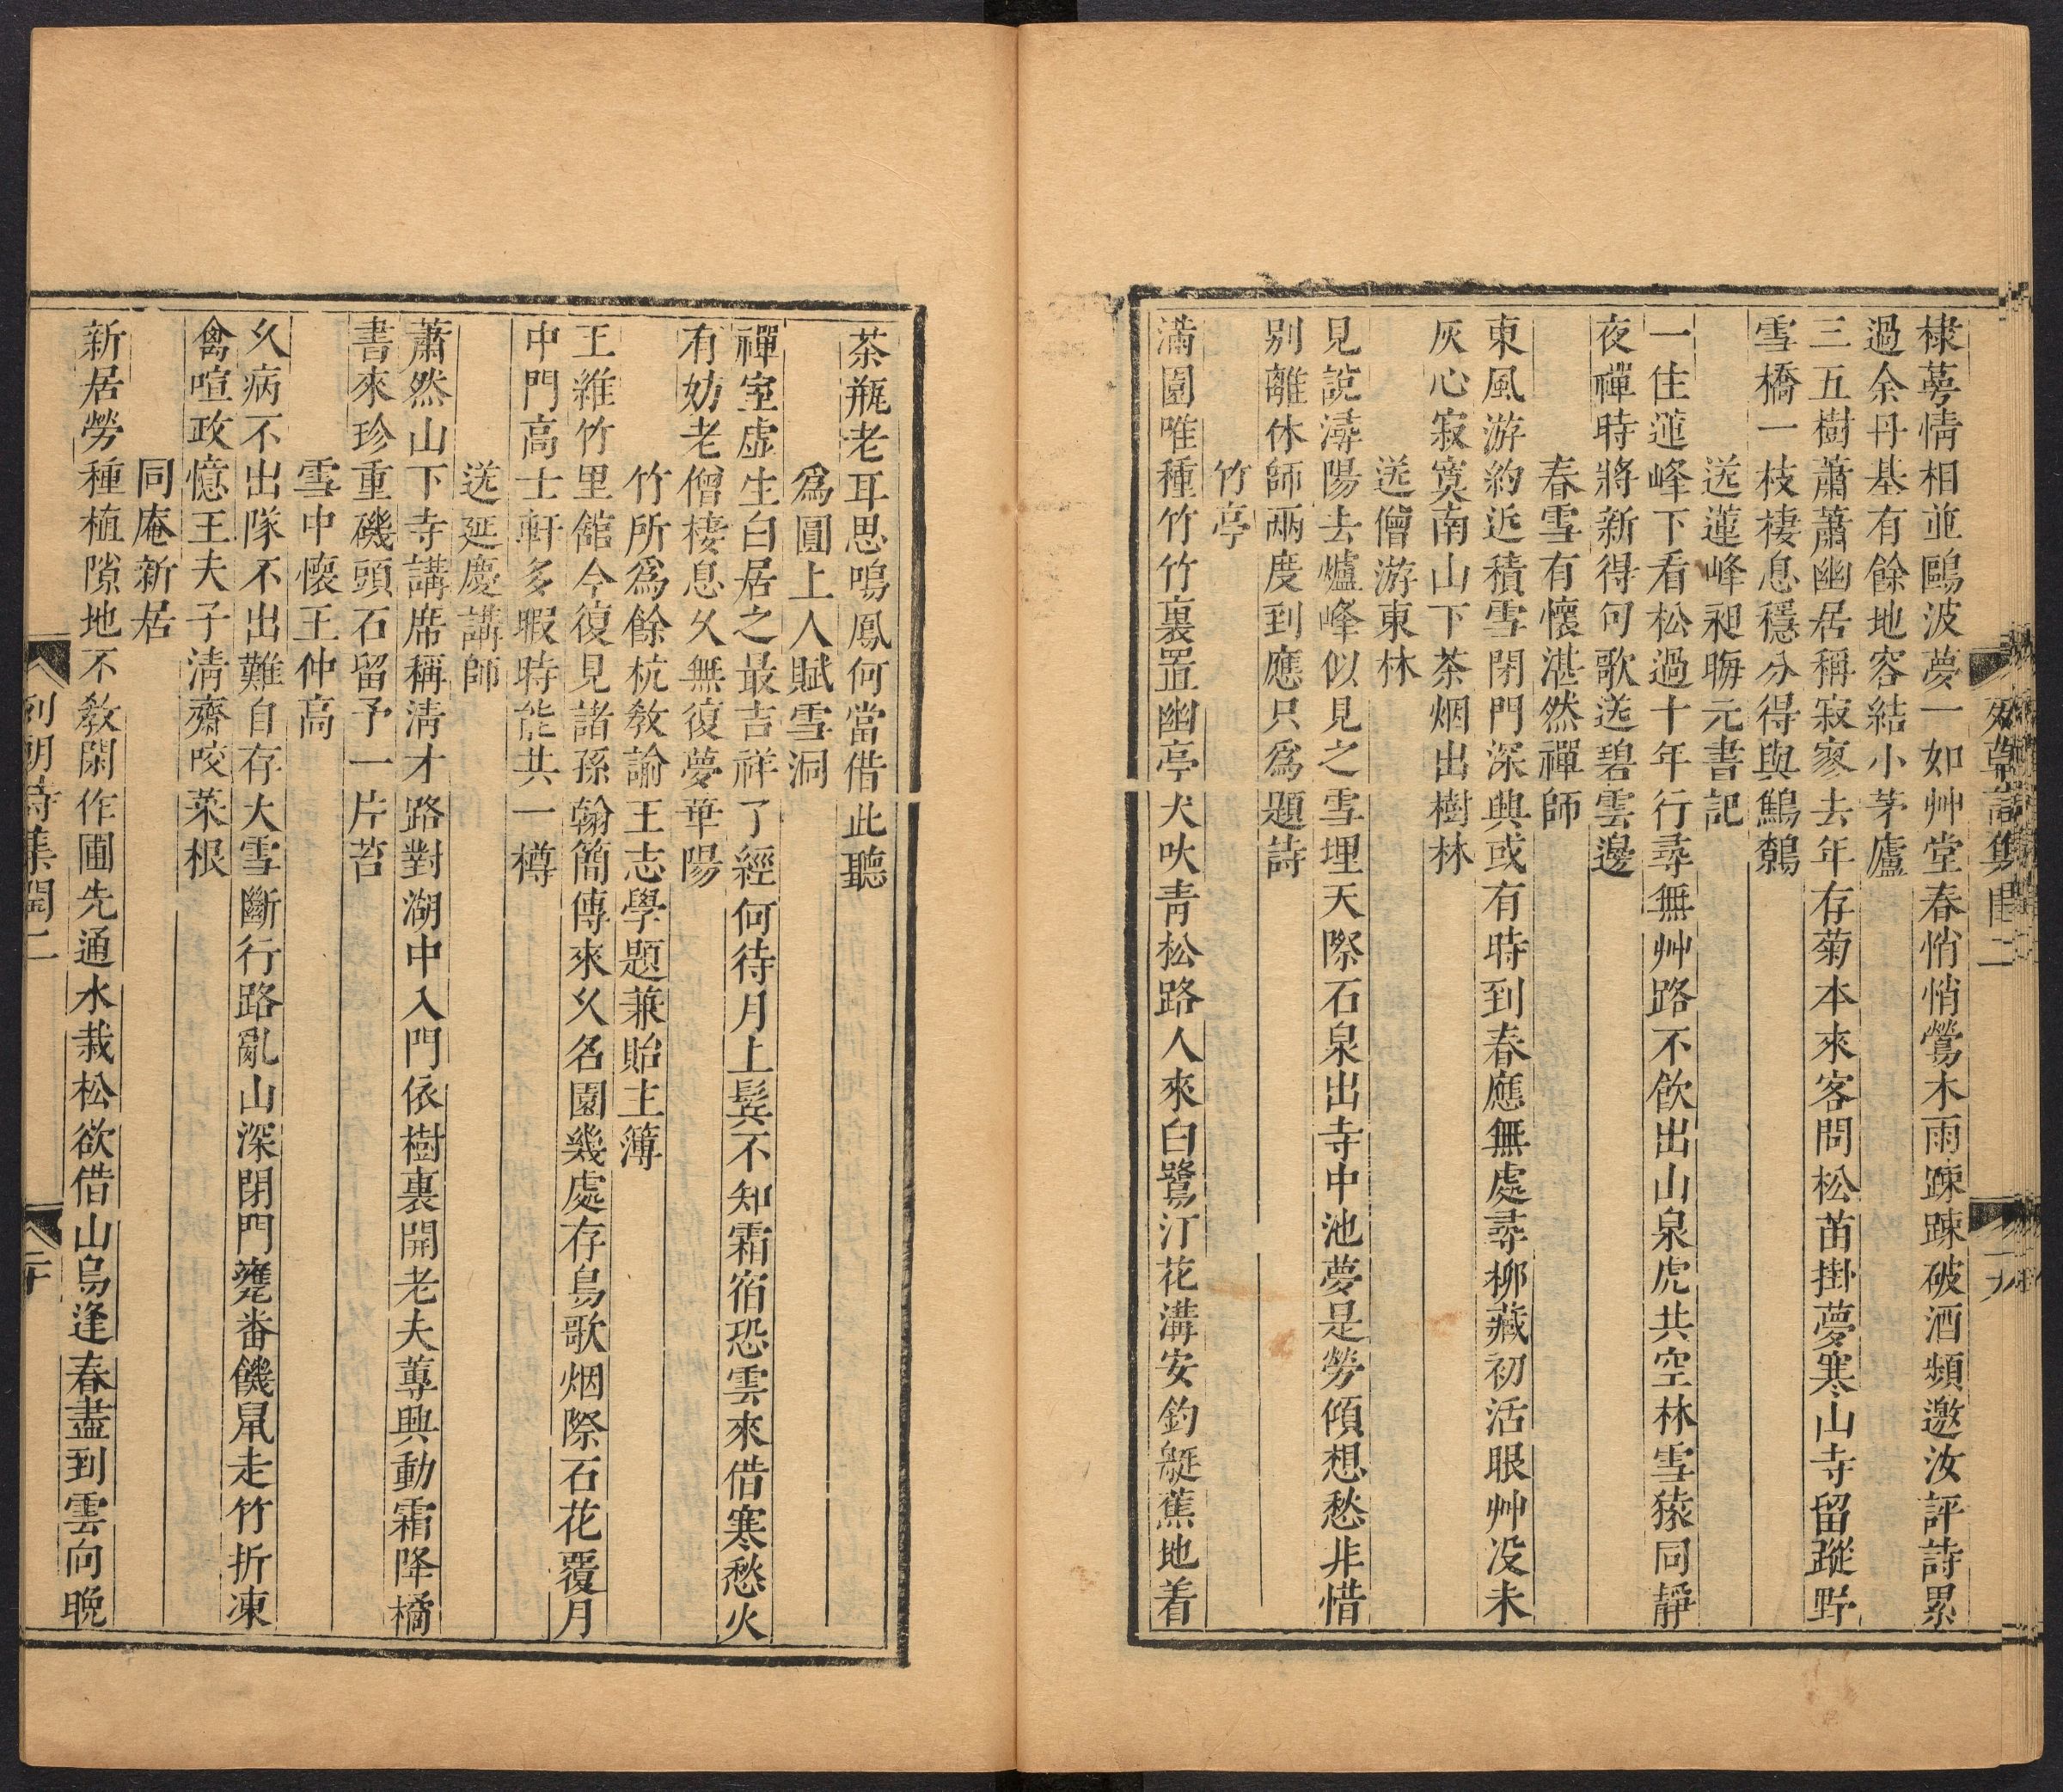 棣萼情相並鷗波夢一如艸堂春悄悄鶯木雨疎疎破酒頻邀汝評詩累
過余丹基有餘地容結小茅廬
三五樹蕭蕭幽居稱寂寥去年存菊本來客問松苗掛夢寒山寺留蹤野
雪橋一枝棲息穩分得與鷦鷯
送蓮峰昶晦元書記
一住蓮峰下看松過十年行尋無艸路不飲出山泉虎共空林雪猿同靜
夜禪時將新得句歌送碧雲邊
春雪有懷湛然禪師
東風游約近積雪閉門深興或有時到春應無處尋柳藏初活眼艸没未
灰心寂寞南山下茶烟出樹林
送僧游東林
見說潯陽去爐峰似見之雪埋天際石泉出寺中池夢是勞傾想愁非惜
别離休師兩度到應只爲題詩
竹亭
滿園唯種竹竹裏置幽亭犬吠靑松路人來白鷺汀花溝安釣艇蕉地着
茶瓶老耳思鳴鳳何當借此聽
爲圓上人賦雪洞
禪室虛生白居之最吉祥了經何待月上鬂不知霜宿恐雲來借寒愁火
有妨老僧棲息久無復夢華陽
竹所爲餘杭敎諭王志學題兼貽主簿
王維竹里館今復見諸孫翰簡傳來久名園幾處存鳥歌烟際石花覆月
中門高士軒多暇時能共一樽
送延慶講師
蕭然山下寺講席稱淸才路對湖中入門依樹裏開老夫蓴興動霜降橘
書來珍重磯頭石留予一片苔
雪中懷王仲高
久病不出隊不出難自存大雪斷行路亂山深閉門甕畨饑鼠走竹折凍
禽喧政憶王夫子淸齋咬菜根
同庵新居
新居勞種植隙地不敎閑作圃先通水栽松欲借山烏逢春盡到雲向晚
列朝詩集閏二
二十